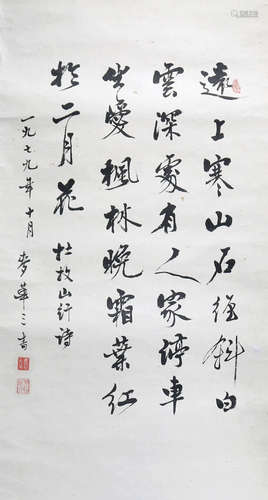 遠上寒山石徑斜白
雲深處有人家停車
坐愛楓林晚霜葉紅
於二月花 杜牧山行詩
一九七九年十月 麥華三書